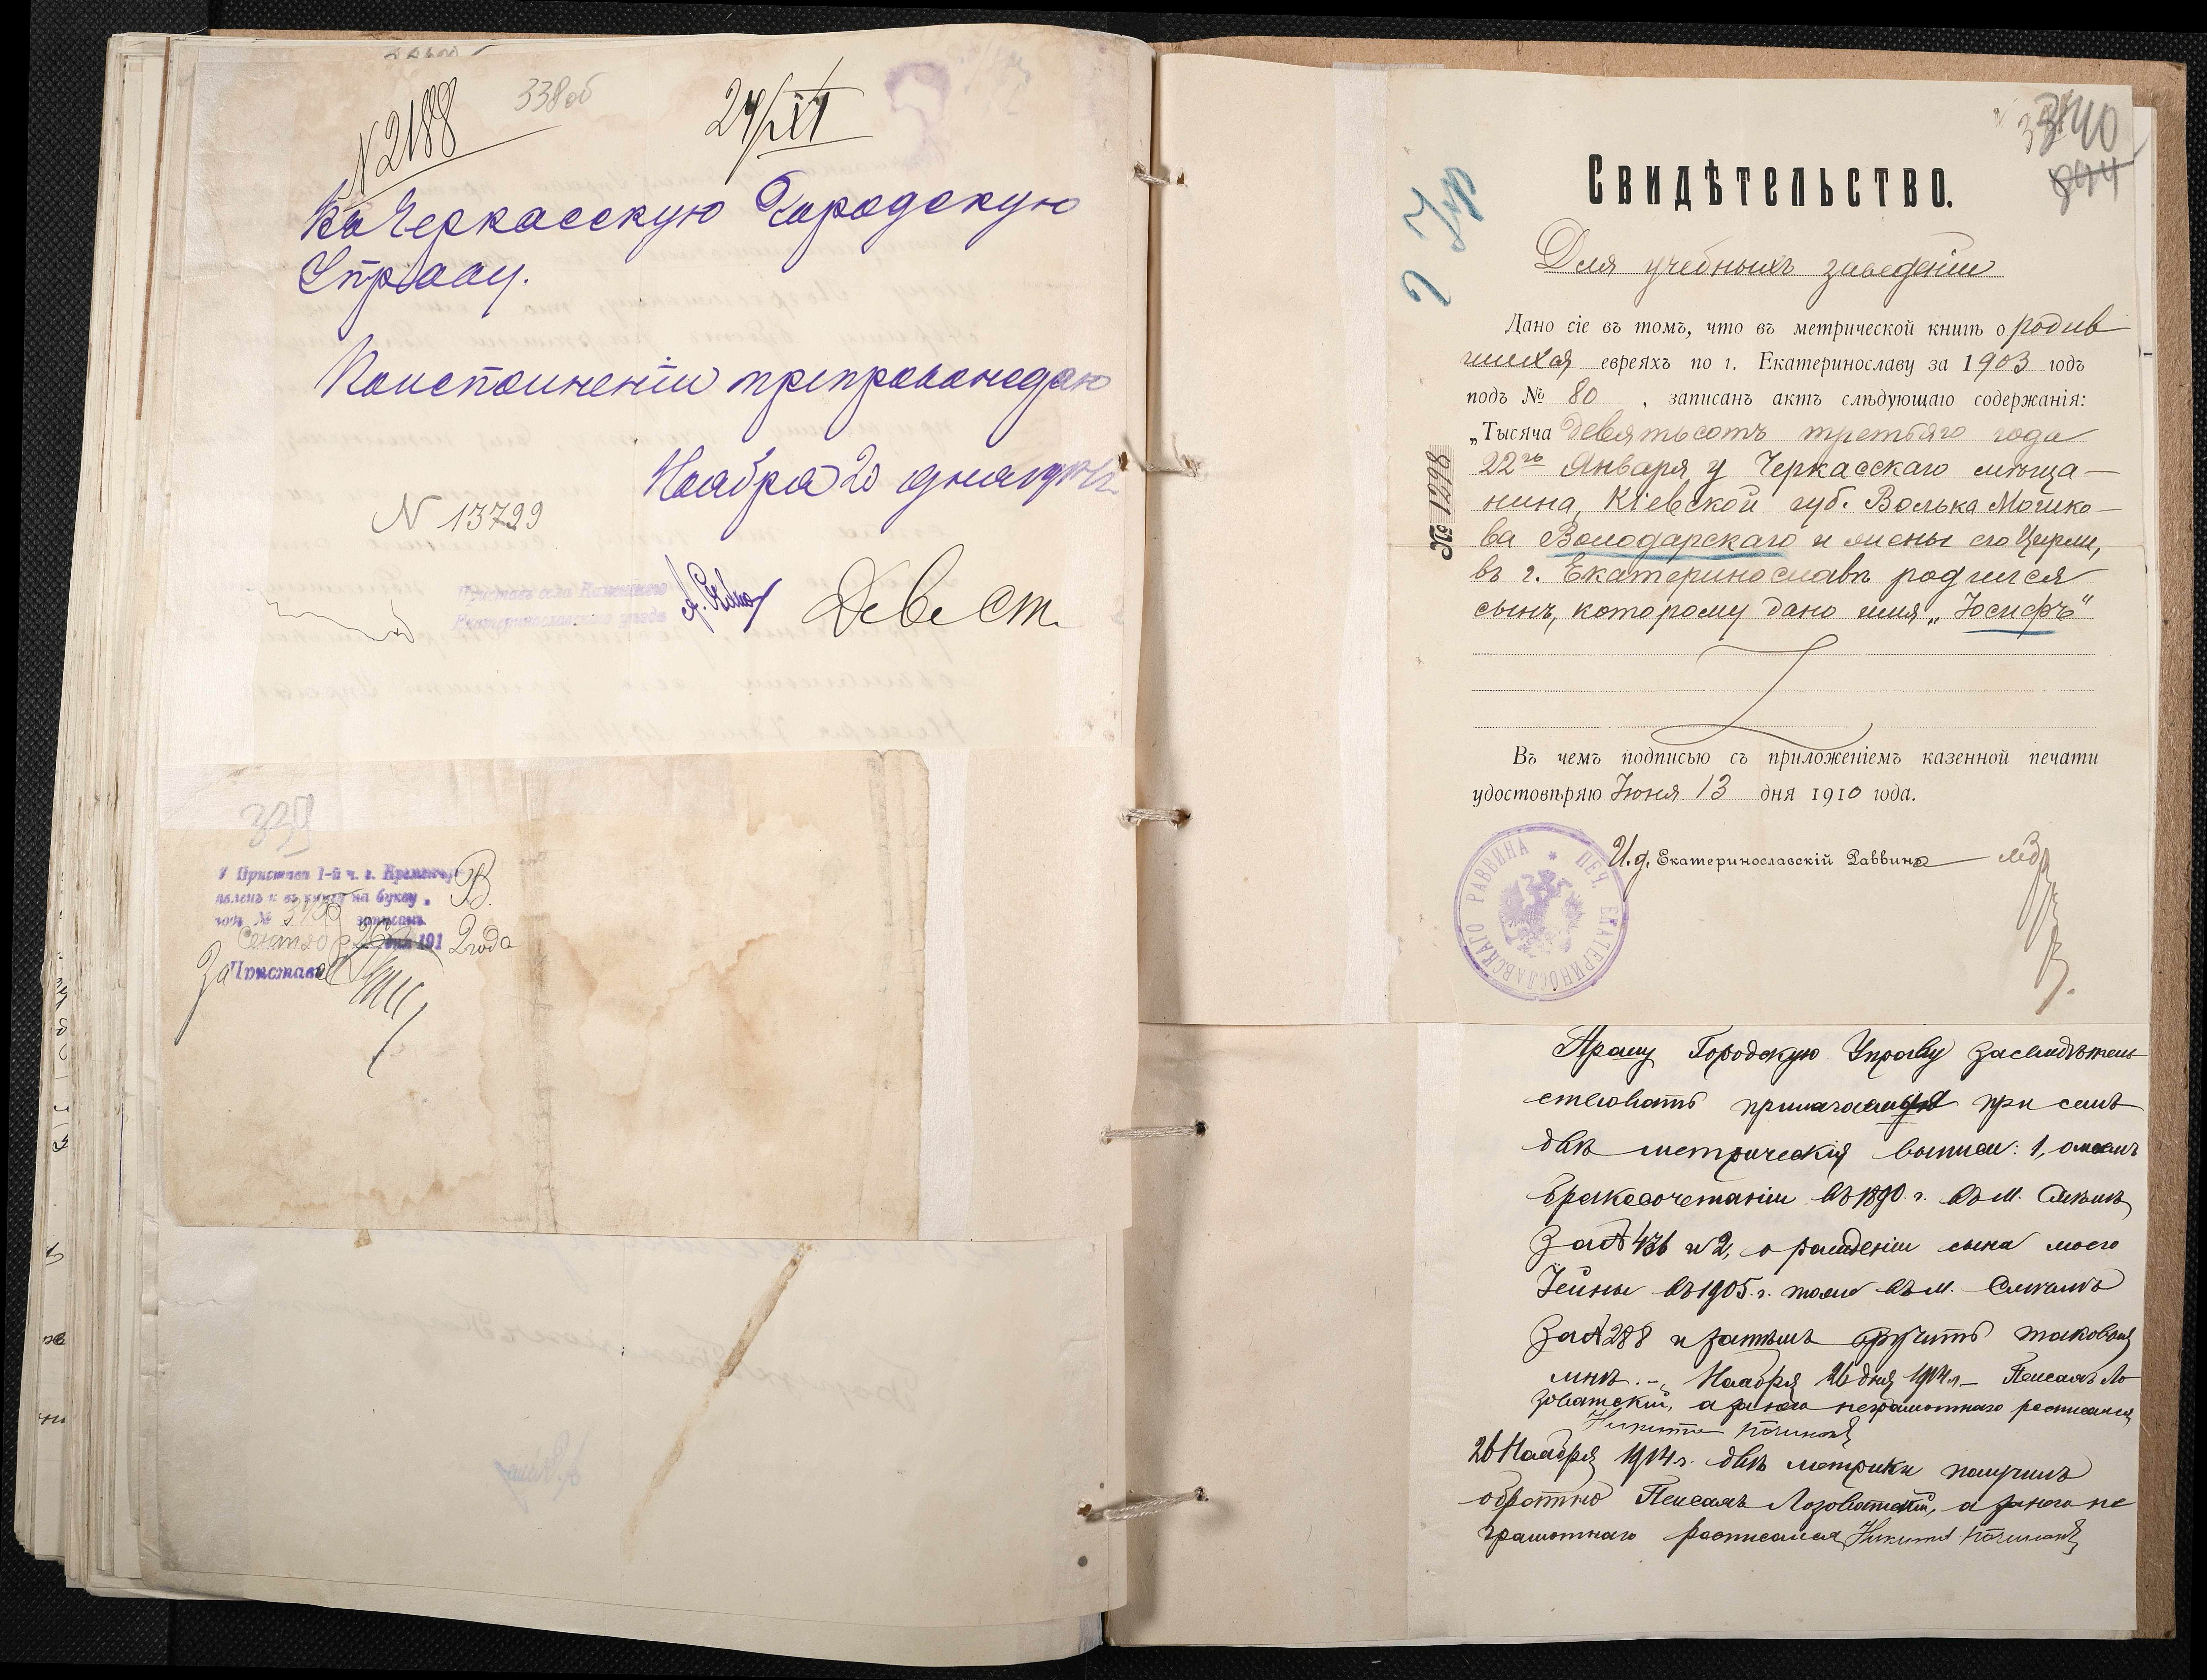 N 2188
338об
24/XI
Въ Черкасскую Городскую
Управу.
По исполненіи препровождаю
Ноября 20 дня
N 13729
Приставъ села Каменскаго
Екатеринославскаго уѣзда
339
У Пристава 1-й ч. г. Кременчуга
явленъ и въ книгу на букву „ В.
подъ № записанъ
Сентяб 26 дня 191 2 года
За Пристава
340
Свидѣтельство.
Для учебныхъ заведеній
Дано сіе въ томъ, что въ метрической книгѣ о родив
шихся евреяхъ по г. Екатеринославу за 1903 годъ
подъ № 80 , записанъ актъ слѣдующаго содержанія:
„Тысяча девятьсотъ третьяго года
22го Января у Черкасскаго мѣща-
нина, Кіевской губ. Волька Мошко-
ва Володарскаго и жены его Цирли,
въ г. Екатеринославѣ родился
сынъ, которому дано имя „Іосифъ"
№ 1298
Въ чемъ подписью съ приложеніемъ казенной печати
удостовѣряю Іюня 13 дня 1910 года.
И.д. Екатеринославскій Раввинъ
ПЕЧ. ЕКАТЕРИНОСЛАВСКАГО РАВВИНА
Прошу Городскую Управу засвидѣтель
ствовать при семъ
двѣ метрическія выписи: 1, о моемъ
бракосочетаніи въ 1890 г. въ м.
за № 436 и 2, о рожденіи сына моего
въ 1905 г. тоже въ м.
за № 288 и затѣмъ вручить таковыя
мнѣ. - Ноября 26 дня 1914 г. - Пейсахъ Ло
зоватскій, а за него неграмотнаго росписался
Никита
26 Ноября 1914 г. двѣ метрики получилъ
обратно Пейсахъ Лозоватскій, а за него не
грамотнаго росписался Никита